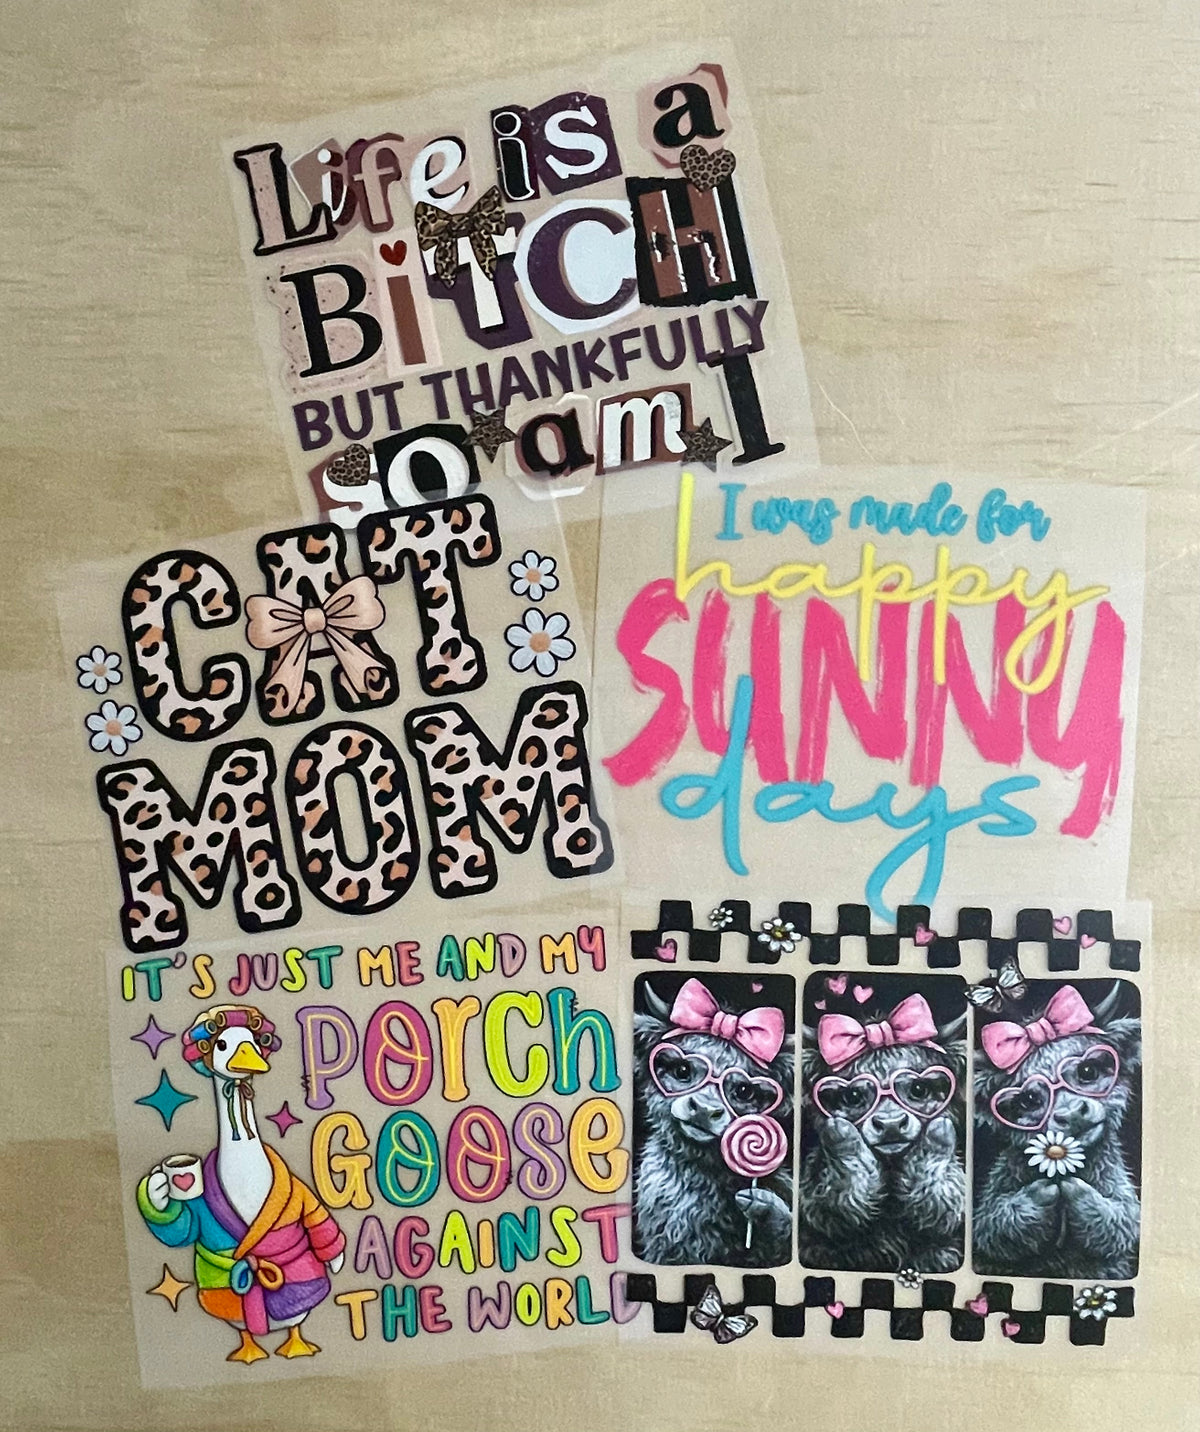 Life is a
BiTCH
BUT THANKFULLY
so am I
CAT
MOM
I was made for
happy
SUNNY
days
IT'S JUST ME AND MY
PORCH
GOOSE
AGAINST
THE WORLD